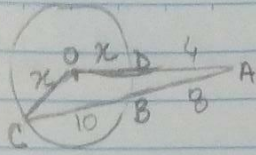 O x D 4 A
x
C 10 B 8